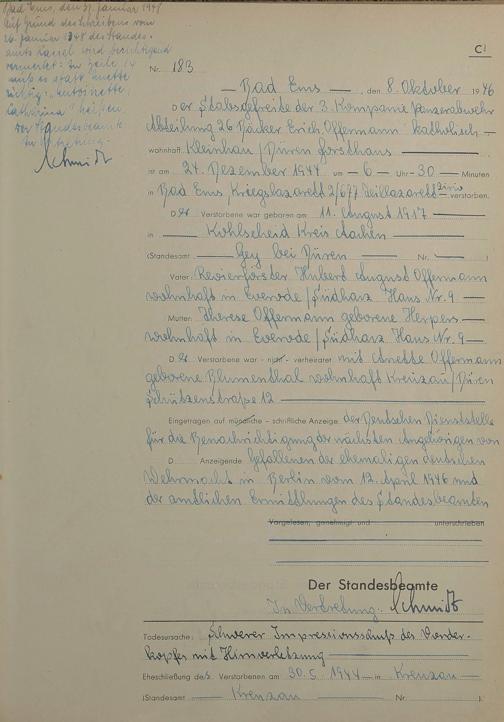 Bad Ems, den 31. Januar 1948
Auf Grund des Schreibens vom
26. Januar 1948 des Standes-
amts Kassel wird berichtigend
vermerkt: In Zeile 14
muß es statt Anette
richtig "Antoinette
Catharina" heißen
Der Standesbeamte
In Vertretung:
Schmidt
C1
Nr. 183
— Bad Ems —, den 8. Oktober 1946
Der Stabsgefreite der 3. Kompanie Panzerabwehr
Abteilung 26 Bäcker Erich Offermann katholisch —
wohnhaft Kleinhau / Düren Forsthaus —
ist am 24. Dezember 1944 um — 6 — Uhr — 30 — Minuten
in Bad Ems, Kriegslazarett 2/677 Teillazarett verstorben.
Der Verstorbene war geboren am 11. August 1917 —
in — Kohlscheid Kreis Aachen —
(Standesamt — Gey bei Düren — Nr. — )
Vater: Revierförster Hubert August Offermann
wohnhaft in Everode / Südharz Haus Nr. 9 —
Mutter: Therese Offermann geborene Herpers —
wohnhaft in Everode / Südharz Haus Nr. 9 —
Der Verstorbene war - nicht - verheiratet mit Anette Offermann
geborene Blumenthal wohnhaft Kreuzau / Düren
Schützenstraße 12 —
Eingetragen auf mündliche - schriftliche Anzeige der Deutschen Dienststelle
für die Benachrichtigung der nächsten Angehörigen von
D Anzeigende Gefallenen der ehemaligen deutschen
Wehrmacht in Berlin vom 12. April 1946 und
der amtlichen Ermittlungen des Standesbeamten
Vorgelesen, genehmigt und unterschrieben
Der Standesbeamte
In Vertretung: Schmidt
Todesursache: Schwerer Impressionsschuß des Vorder-
kopfes mit Hirnverletzung —
Eheschließung des Verstorbenen am 30.5.1944 in Kreuzau —
(Standesamt — Kreuzau — Nr. ).